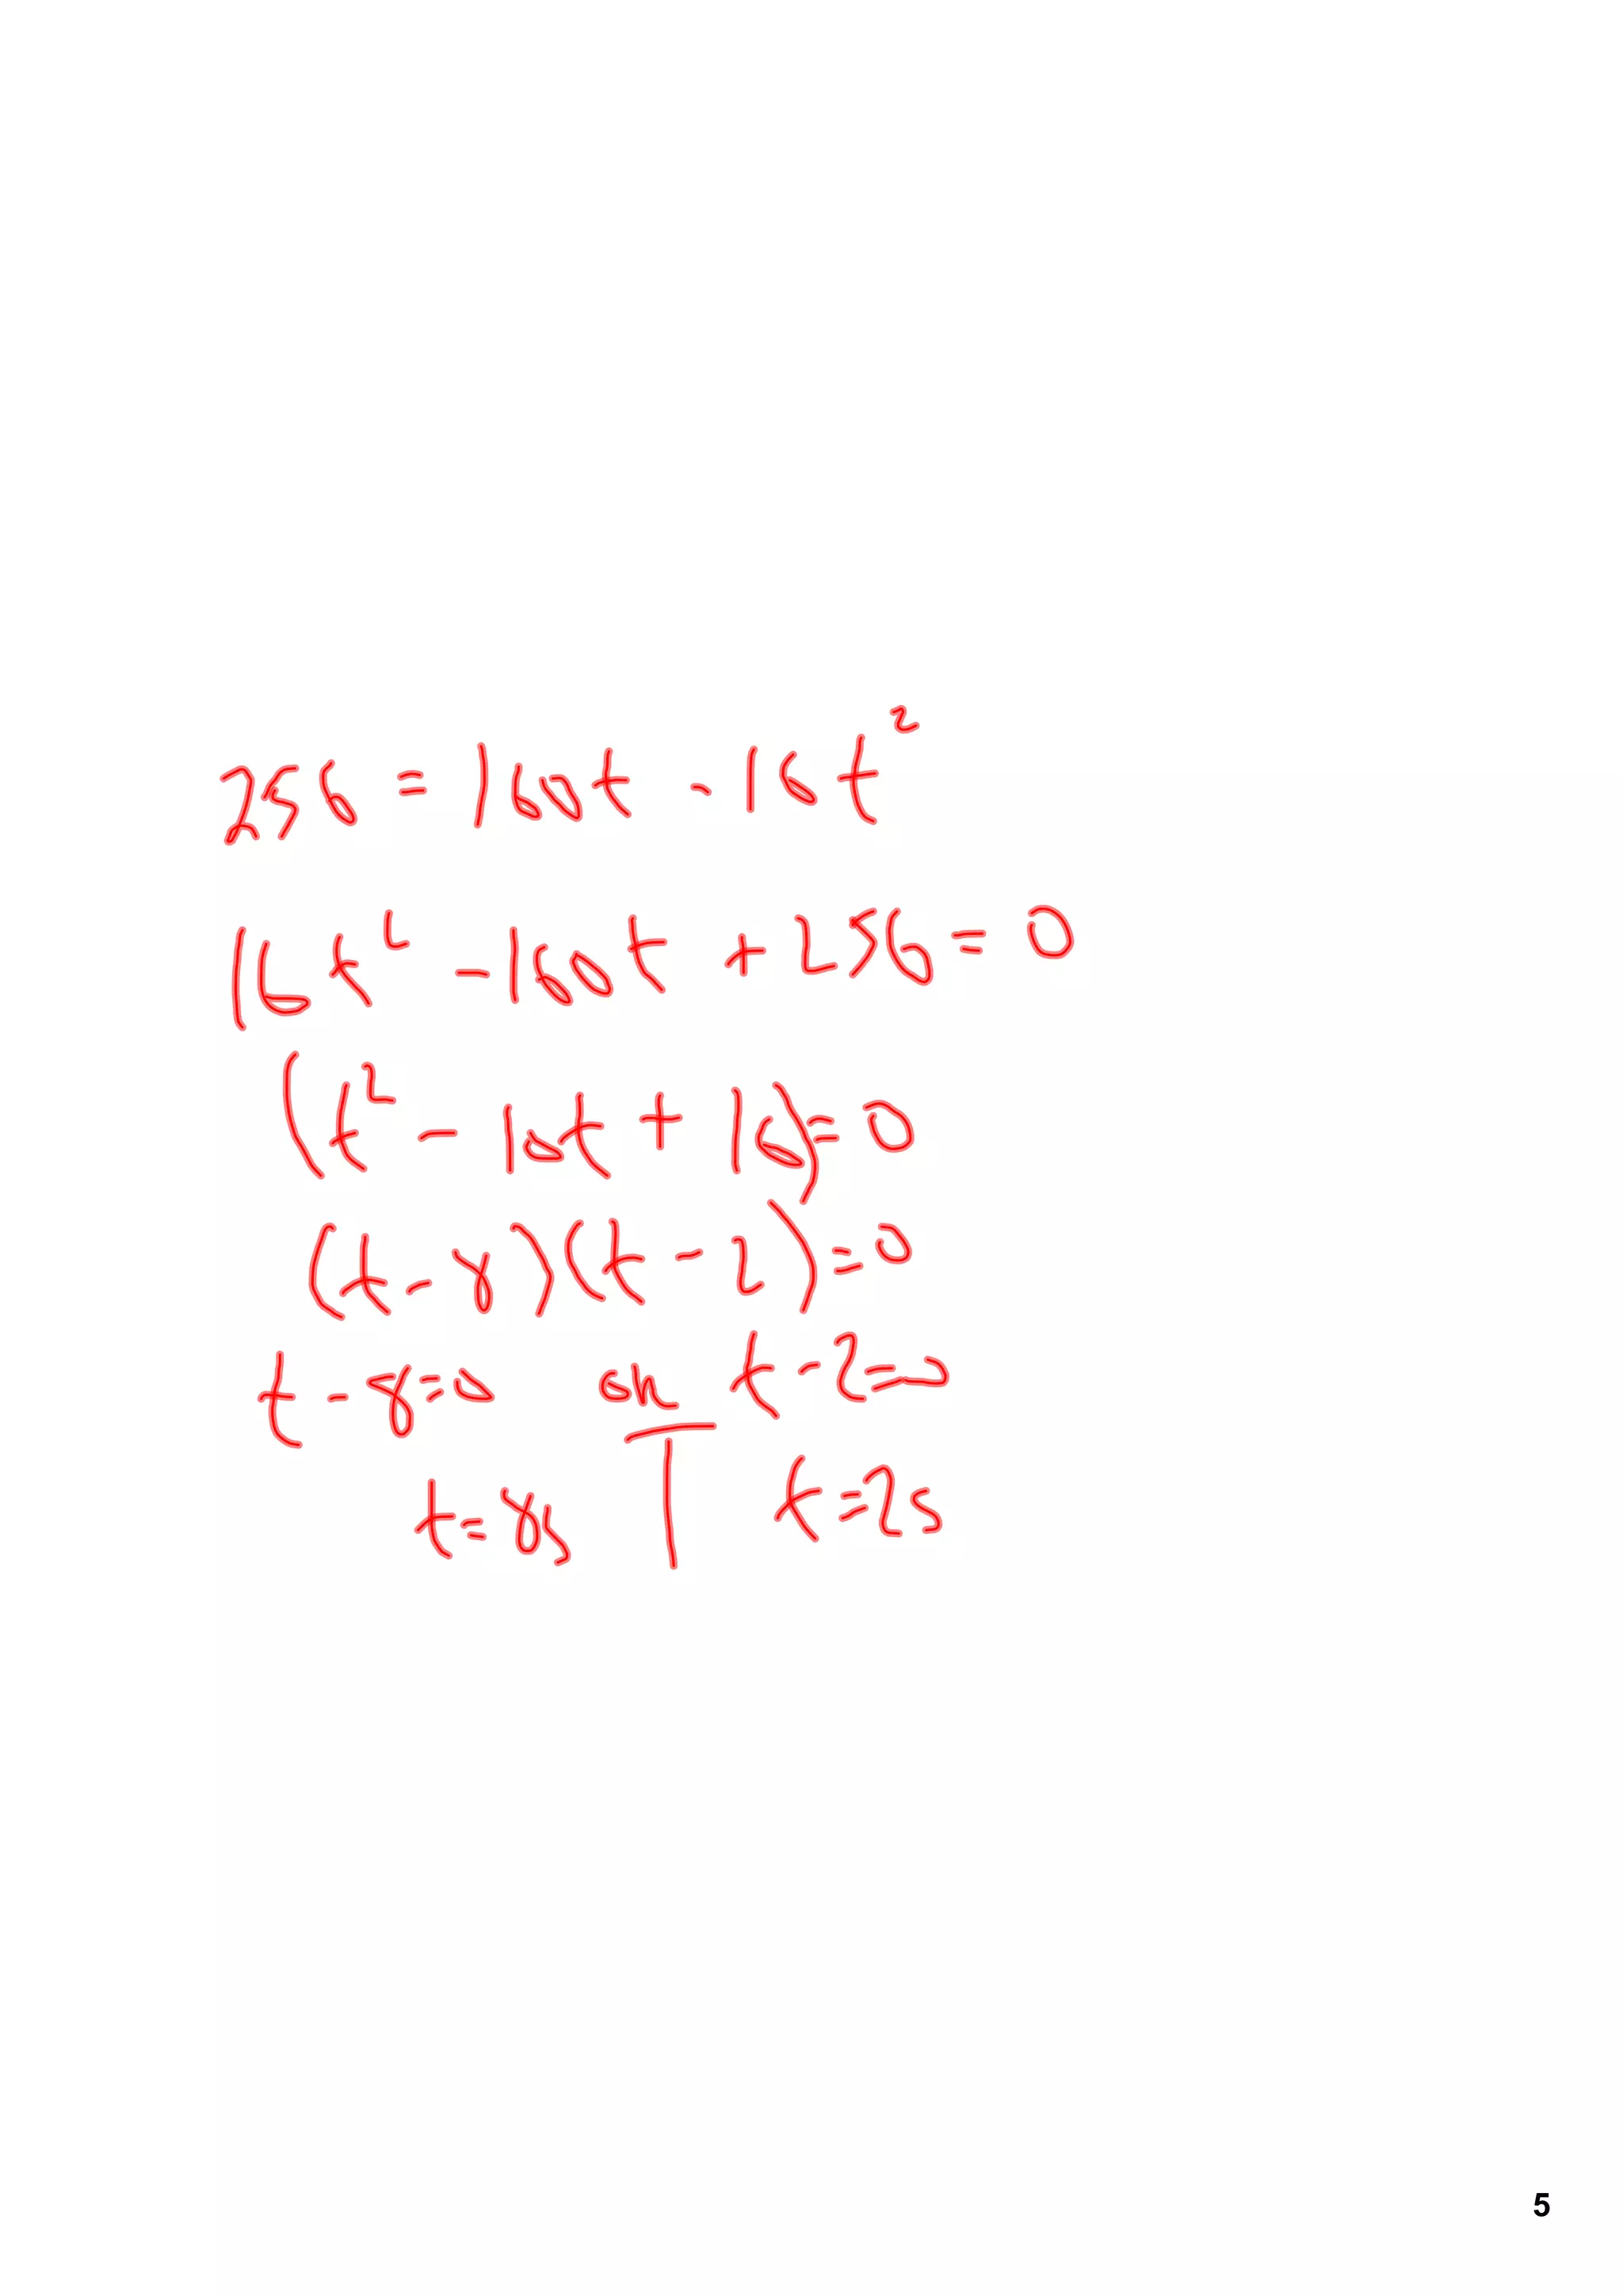 256 = 160t - 16t²
16t² - 160t + 256 = 0
(t² - 10t + 16) = 0
(t - 8)(t - 2) = 0
t - 8 = 0 or t - 2 = 0
t = 8s t = 2s
5